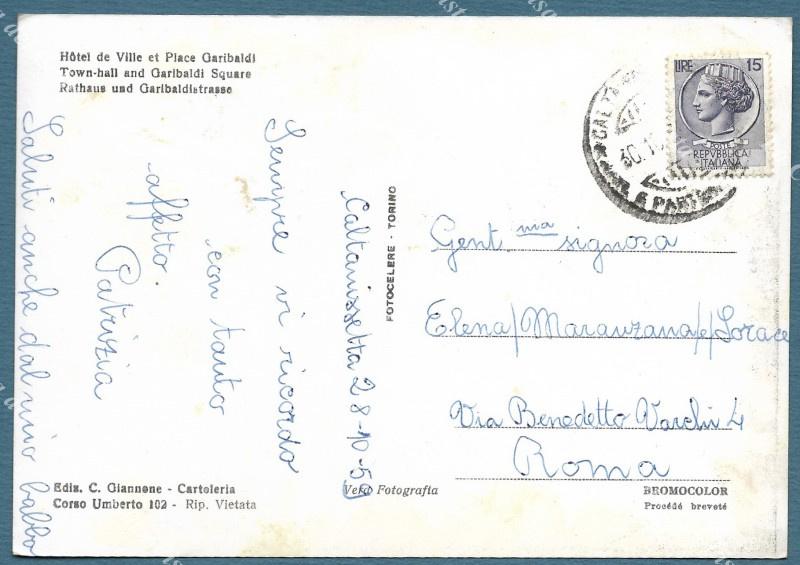 Hôtel de Ville et Place Garibaldi
Town-hall and Garibaldi Square
Rathaus und Garibaldistrasse
Caltanissetta 28-10-59
Sempre vi ricordo
con tanto
affetto.
Patrizia
Saluti anche dal mio babbo
FOTOCELERE - TORINO
LIRE 15
POSTE
REPVBBLICA
ITALIANA
Gent ma signora
Elena Maranzana Sorace
Via Benedetto Varchi 4
Roma
Ediz. C. Giannone - Cartoleria
Corso Umberto 102 - Rip. Vietata
Vera Fotografia
BROMOCOLOR
Procédé breveté